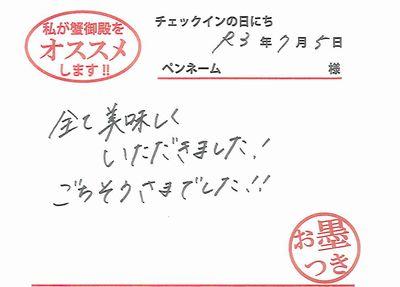 私が蟹御殿を
オススメ
します!!
チェックインの日にち
R3年7月5日
ペンネーム 様
全て美味しく
いただきました!
ごちそうさまでした!!
お墨
つき